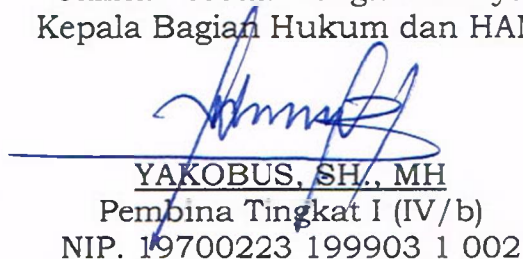 Kepala Bagian Hukum dan HAM
YAKOBUS, SH., MH
Pembina Tingkat I (IV/b)
NIP. 19700223 199903 1 002